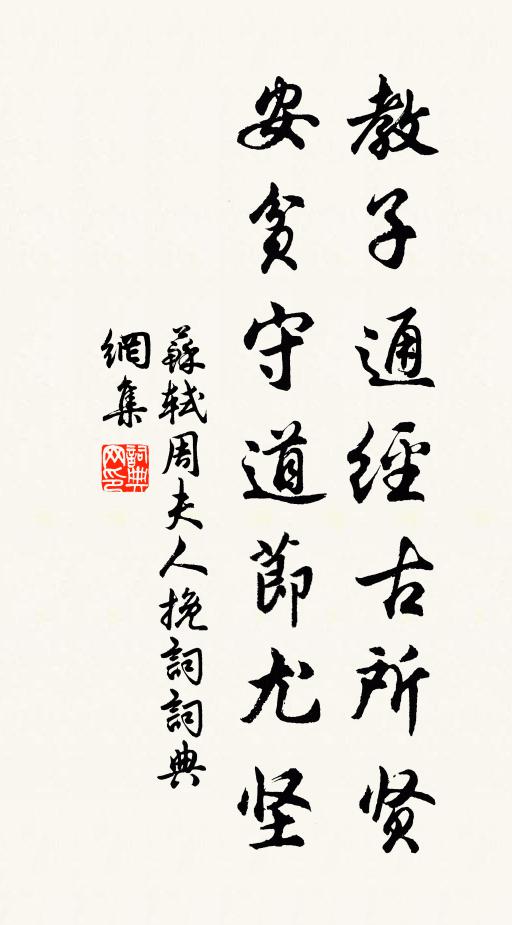 教子通經古所贤
安貧守道節尤坚
蘇軾周夫人挽詞詞典
網集
詞典
网印